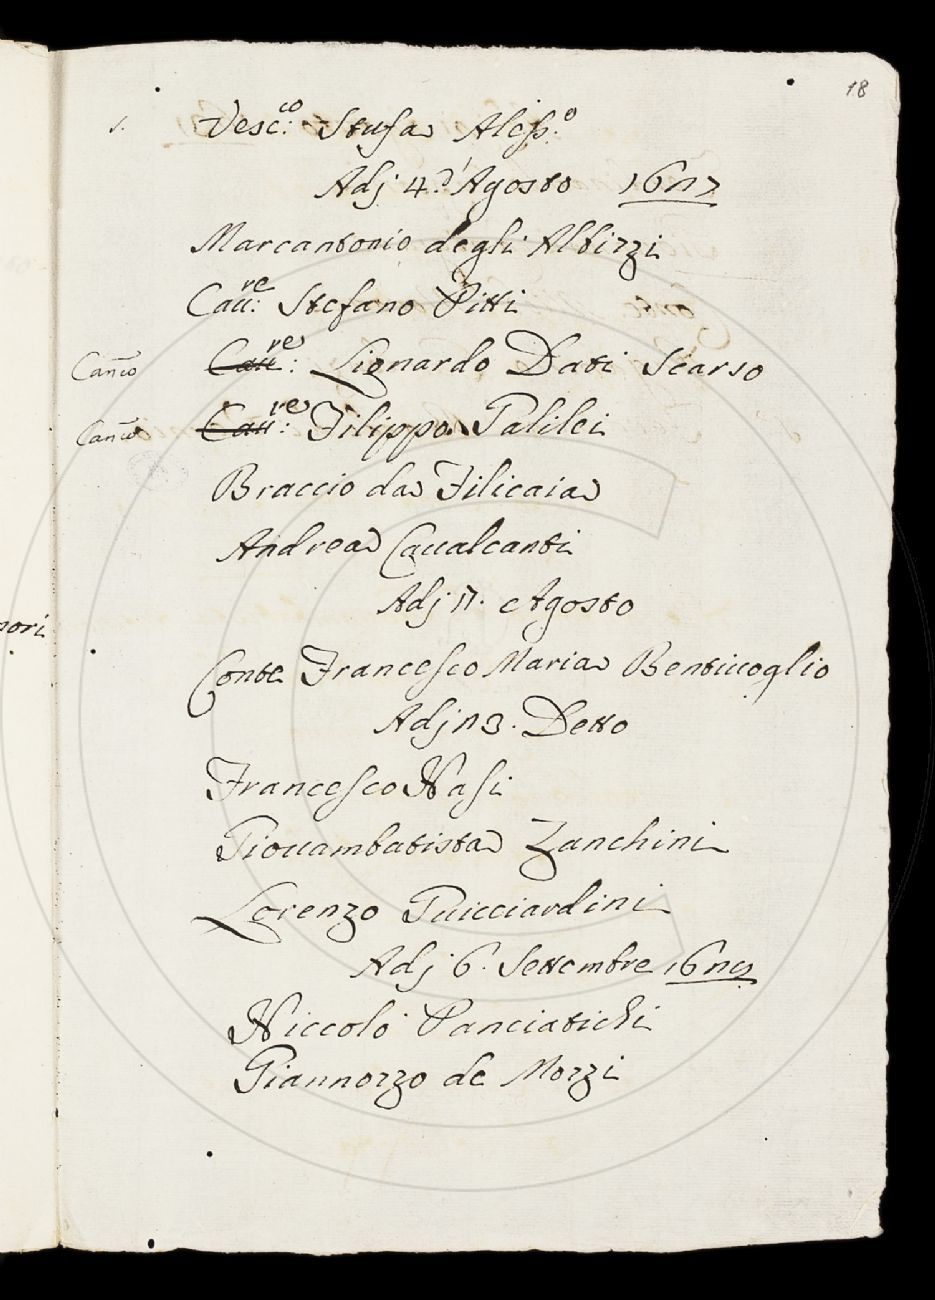 18
s. Vesc:co Stufa Aless:o
Adj 4.° Agosto
Marcantonio degli Albizzi
Cau:re Stefano Pitti
Can:co Cau:re Lionardo Dati Scarso
Can:co Cau:re Filippo Galilei
Braccio da Filicaia
Andrea Caualcanti
Adj 17. Agosto
nori
Conte Francesco Maria Bentiuoglio
Adj 13. Detto
Francesco Nasi
Giouambatista Zanchini
Lorenzo Guicciardini
Adj 6. Settembre
Niccolò Panciatichi
Giannozzo de Mozzi